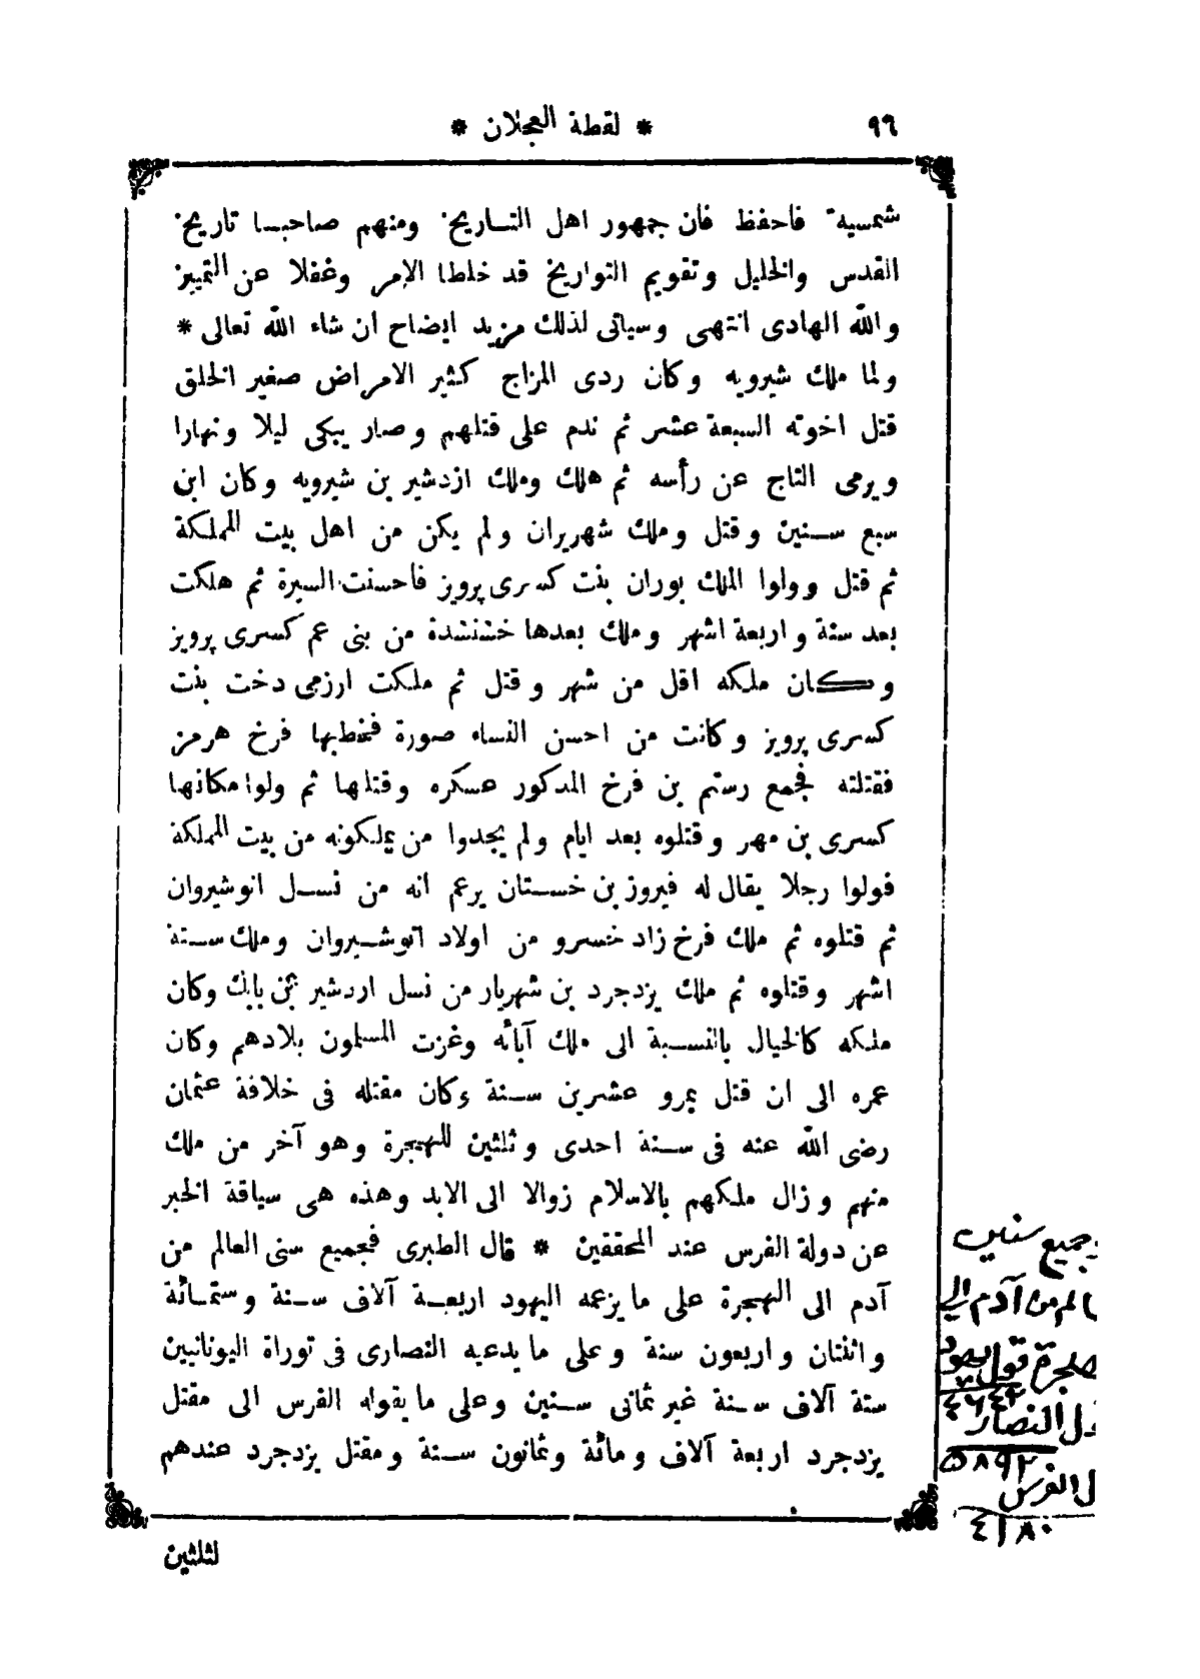 ٩٦
* لقطة العجلان *
شمسية فاحفظ فان جمهور اهل التاريخ ومنهم صاحبا تاريخ
القدس والخليل وتقويم التواريخ قد خلطا الامر وغفلا عن التمييز
والله الهادى انتهى وسياتى لذلك مزيد ايضاح ان شاء الله تعالى *
ولما ملك شيرويه وكان ردى المزاج كثير الامراض صغير الخلق
قتل اخوته السبعة عشر ثم ندم على قتلهم وصار يبكى ليلا ونهارا
ويرمى التاج عن رأسه ثم هلك وملك ازدشير بن شيرويه وكان ابن
سبع سنين وقتل وملك شهريران ولم يكن من اهل بيت المملكة
ثم قتل وولوا الملك بوران بنت كسرى پرويز فاحسنت السيرة ثم هلكت
بعد سنة واربعة اشهر وملك بعدها خشنشدة من بنى عم كسرى پرويز
وكان ملكه اقل من شهر وقتل ثم ملكت ارزمى دخت بنت
كسرى پرويز وكانت من احسن النساء صورة فخطبها فرخ هرمز
فقتلته فجمع رستم بن فرخ المذكور عسكره وقتلها ثم ولوا مكانها
كسرى بن مهر وقتلوه بعد ايام ولم يجدوا من يملكونه من بيت المملكة
فولوا رجلا يقال له فيروز بن خستان يزعم انه من نسل انوشيروان
ثم قتلوه ثم ملك فرخ زاد خسرو من اولاد انوشيروان وملك ستة
اشهر وقتلوه ثم ملك يزدجرد بن شهريار من نسل اردشير بن بابك وكان
ملكه كالخيال بالنسبة الى ملك آبائه وغزت المسلمون بلادهم وكان
عمره الى ان قتل بمرو عشرين سنة وكان مقتله فى خلافة عثمان
رضى الله عنه فى سنة احدى وثلثين للهجرة وهو آخر من ملك
منهم وزال ملكهم بالاسلام زوالا الى الابد وهذه هى سياقة الخبر
عن دولة الفرس عند المحققين * قال الطبرى فجميع سنى العالم من
آدم الى الهجرة على ما يزعمه اليهود اربعة آلاف سنة وستمائة
واثنتان واربعون سنة وعلى ما يدعيه النصارى فى توراة اليونانيين
ستة آلاف سنة غير ثمانى سنين وعلى ما يقوله الفرس الى مقتل
يزدجرد اربعة آلاف ومائة وثمانون سنة ومقتل يزدجرد عندهم
لثلثين
جميع سنين
من آدم الى
قول يهود
٤٦٤٢
النصار
٥٨٩٢
الفرس
٤١٨٠